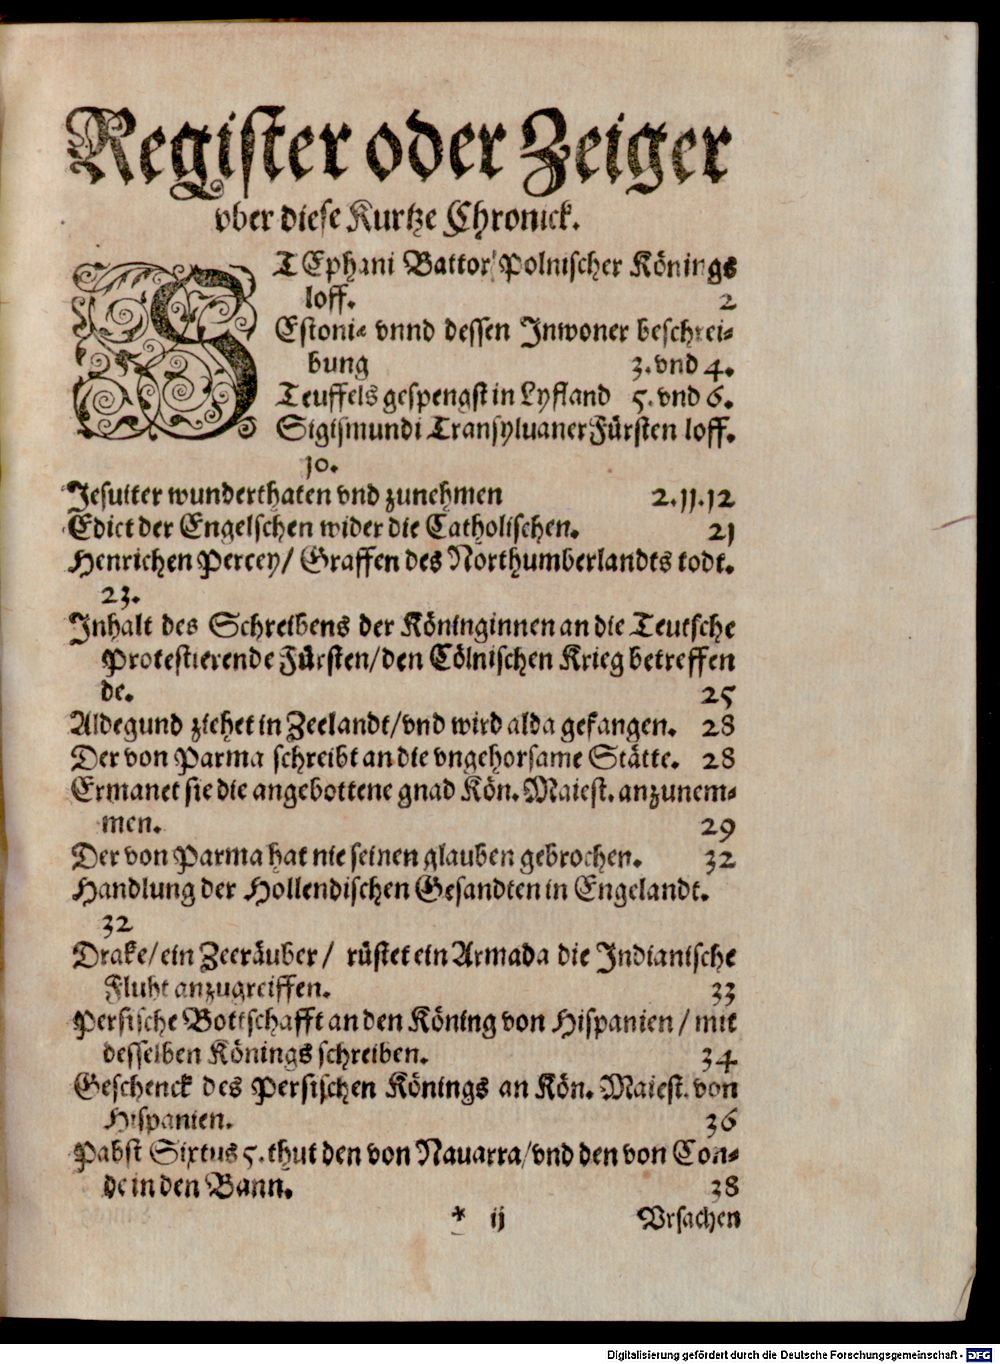 Register oder Zeiger
vber diese Kurtze Chronick.
STEphani Battor/Polnischer Könings
loff. 2
Estoni- vnnd dessen Inwoner beschrei-
bung 3. vnd 4.
Teuffels gespengst in Lyfland 5. vnd 6.
Sigismundi Transyluaner Fürsten loff.
10.
Jesuiter wunderthaten vnd zunehmen 2.11.12
Edict der Engelschen wider die Catholischen. 21
Henrichen Percey/ Graffen des Northumberlandts todt.
23.
Inhalt des Schreibens der Köninginnen an die Teutsche
Protestierende Fürsten/den Cölnischen Krieg betreffen
de. 25
Aldegund ziehet in Zeelandt/vnd wird alda gefangen. 28
Der von Parma schreibt an die vngehorsame Stätte. 28
Ermanet sie die angebottene gnad Kön. Maiest. anzunem-
men. 29
Der von Parma hat nie seinen glauben gebrochen. 32
Handlung der Hollendischen Gesandten in Engelandt.
32
Drake/ein Zeeräuber/ rüstet ein Armada die Indianische
Fluht anzugreiffen. 33
Persische Bottschafft an den Köning von Hispanien/ mit
desselben Könings schreiben. 34
Geschenck des Persischen Könings an Kön. Maiest. von
Hispanien. 36
Pabst Sixtus 5. thut den von Nauarra/vnd den von Con-
de in den Bann. 38
* ij Vrsachen
Digitalisierung gefördert durch die Deutsche Forschungsgemeinschaft - DFG